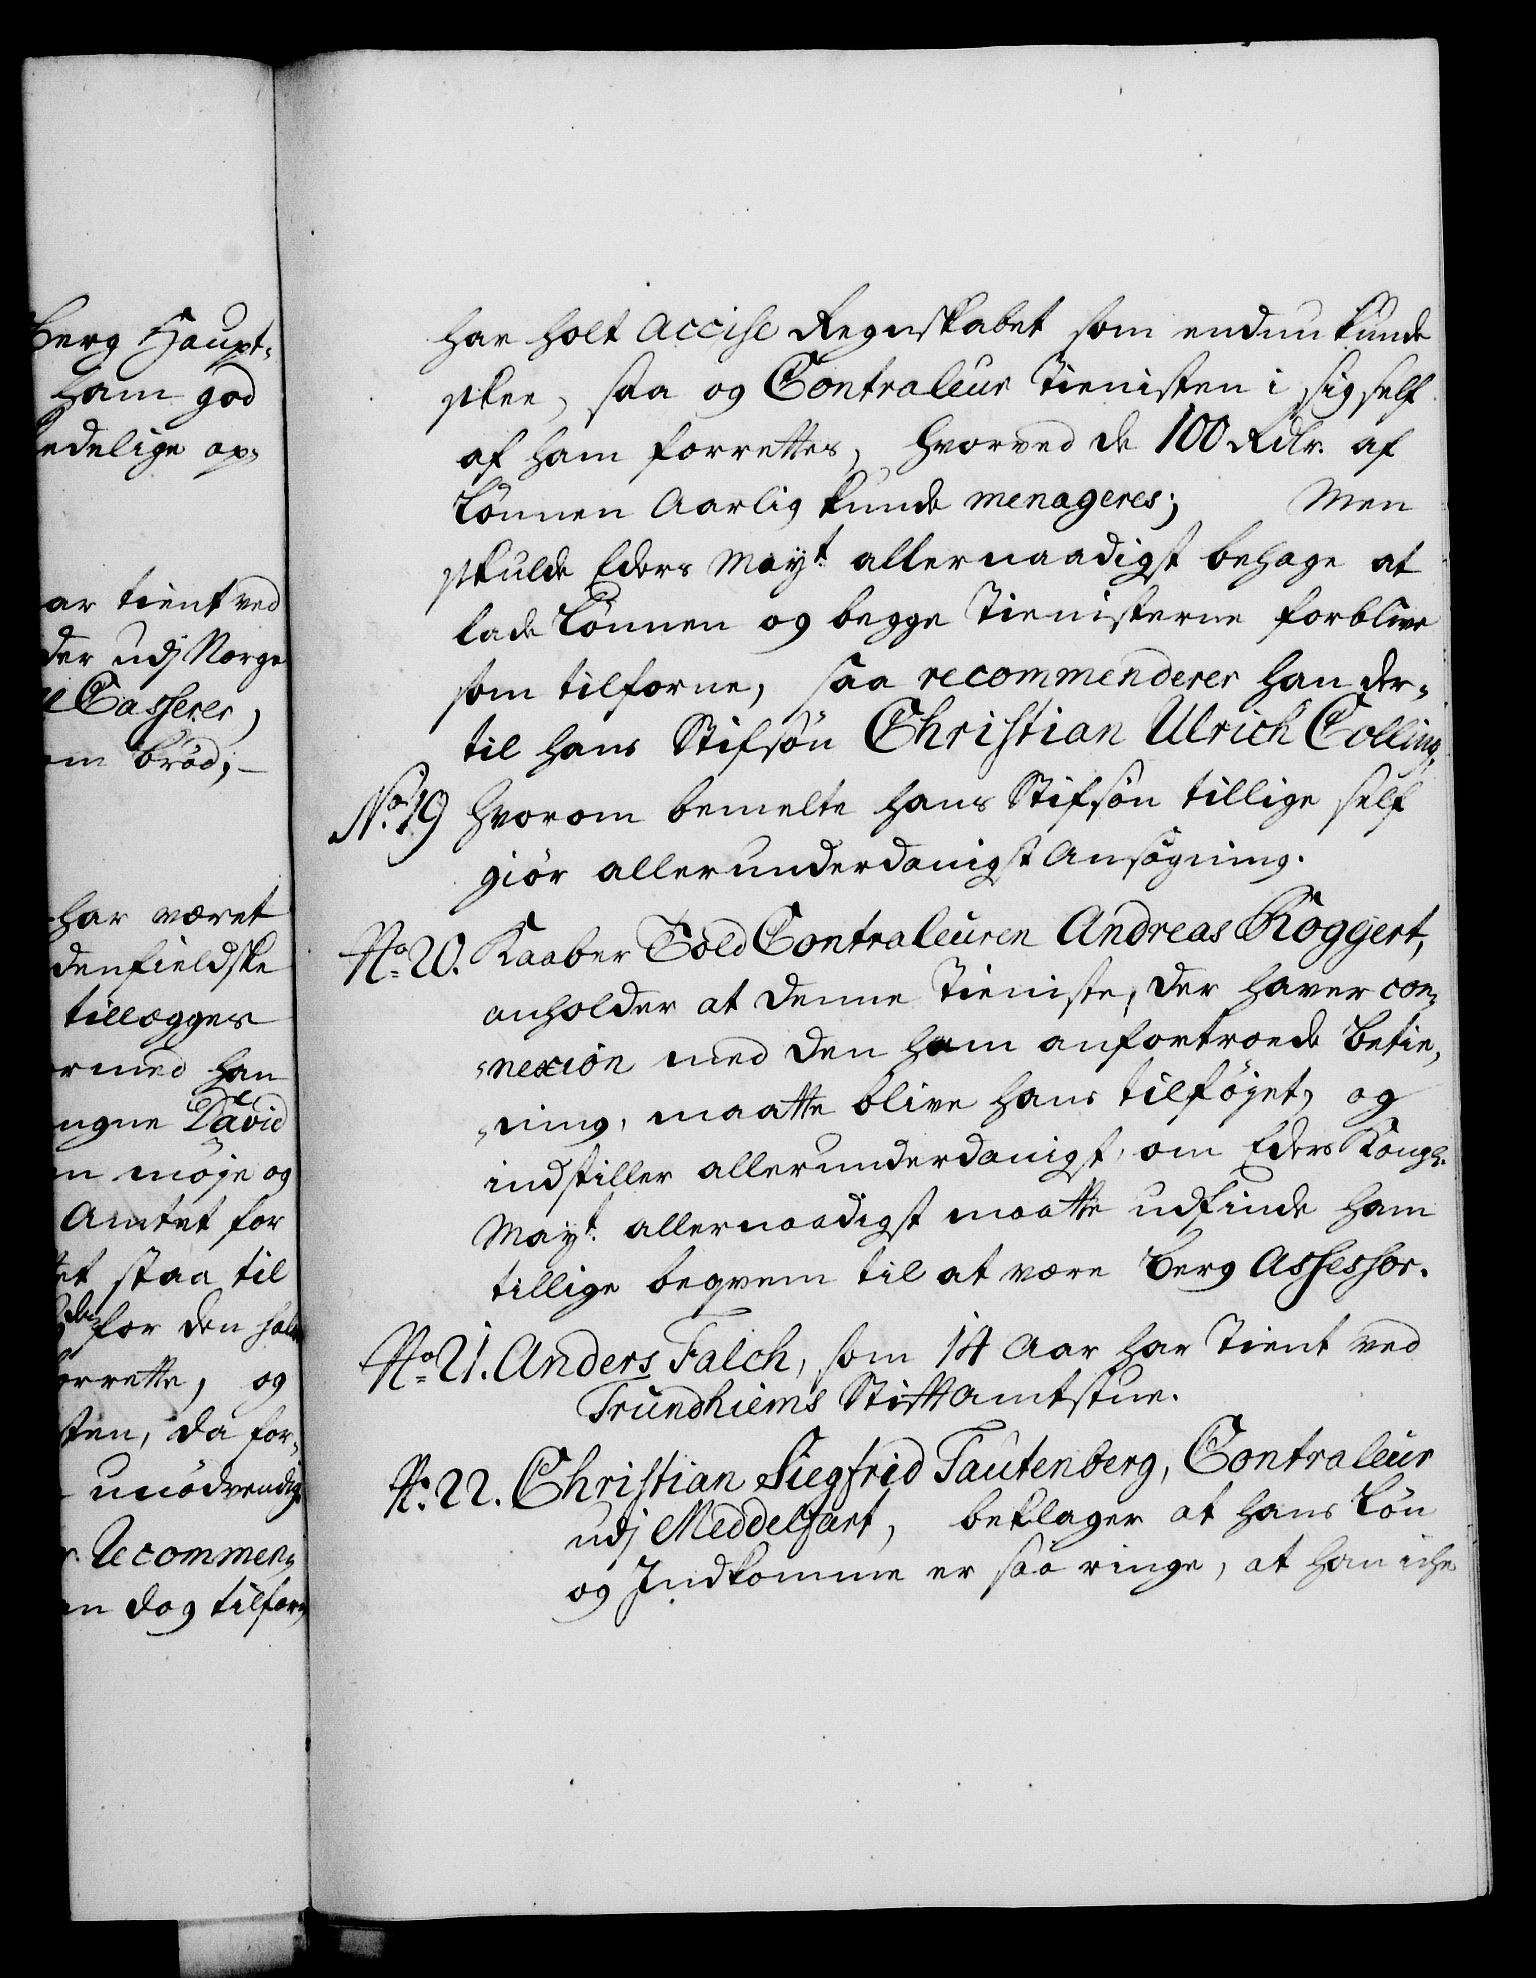 Berg Haupt-
ham god
edelige op-
ar tient ved
der udj Norge
Casserer,
om brød;
har været
denfieldske
tillægges
rmed han
ngne David
n møje og
Amtet for
et staa til
for den hal
orrette, og
sten, da for-
unødvendig
Recommen-
n dog tilforn
har holt Accise Regnskabet som endnu kunde
skee, saa og Contraleur Tienisten i sig self
af ham forrettes, hvorved de 100 Rdlr. af
Lønnen Aarlig kunde menageres; Men
skulde Eders Mayt. allernaadigst behage at
lade Lønnen og begge Tienisterne forblive
som tilforne, saa recommenderer han der-
til hans Stifsøn Christian Ulrich Colling,
No. 19 hvorom bemelte hans Stifsøn tillige self
giør allerunderdanigst Ansøgning.
No. 20. Kaaber Told Contraleuren Andreas Roggert,
anholder at denne Tieniste, der haver con-
nexion med den ham anfortroede betie-
ning, maatte blive hans tilføjet, og
indstiller allerunderdanigst, om Eders Kongl.
Mayt. allernaadigst maatte udfinde ham
tillige beqvem til at være Berg Assessor.
No. 21. Anders Falch, som 14 Aar har tient ved
Trundhiems Stiftamtstue.
No. 22. Christian Siegfrid Tautenberg, Contraleur
udj Meddelfart, beklager at hans Løn
og Indkomme er saa ringe, at han iche